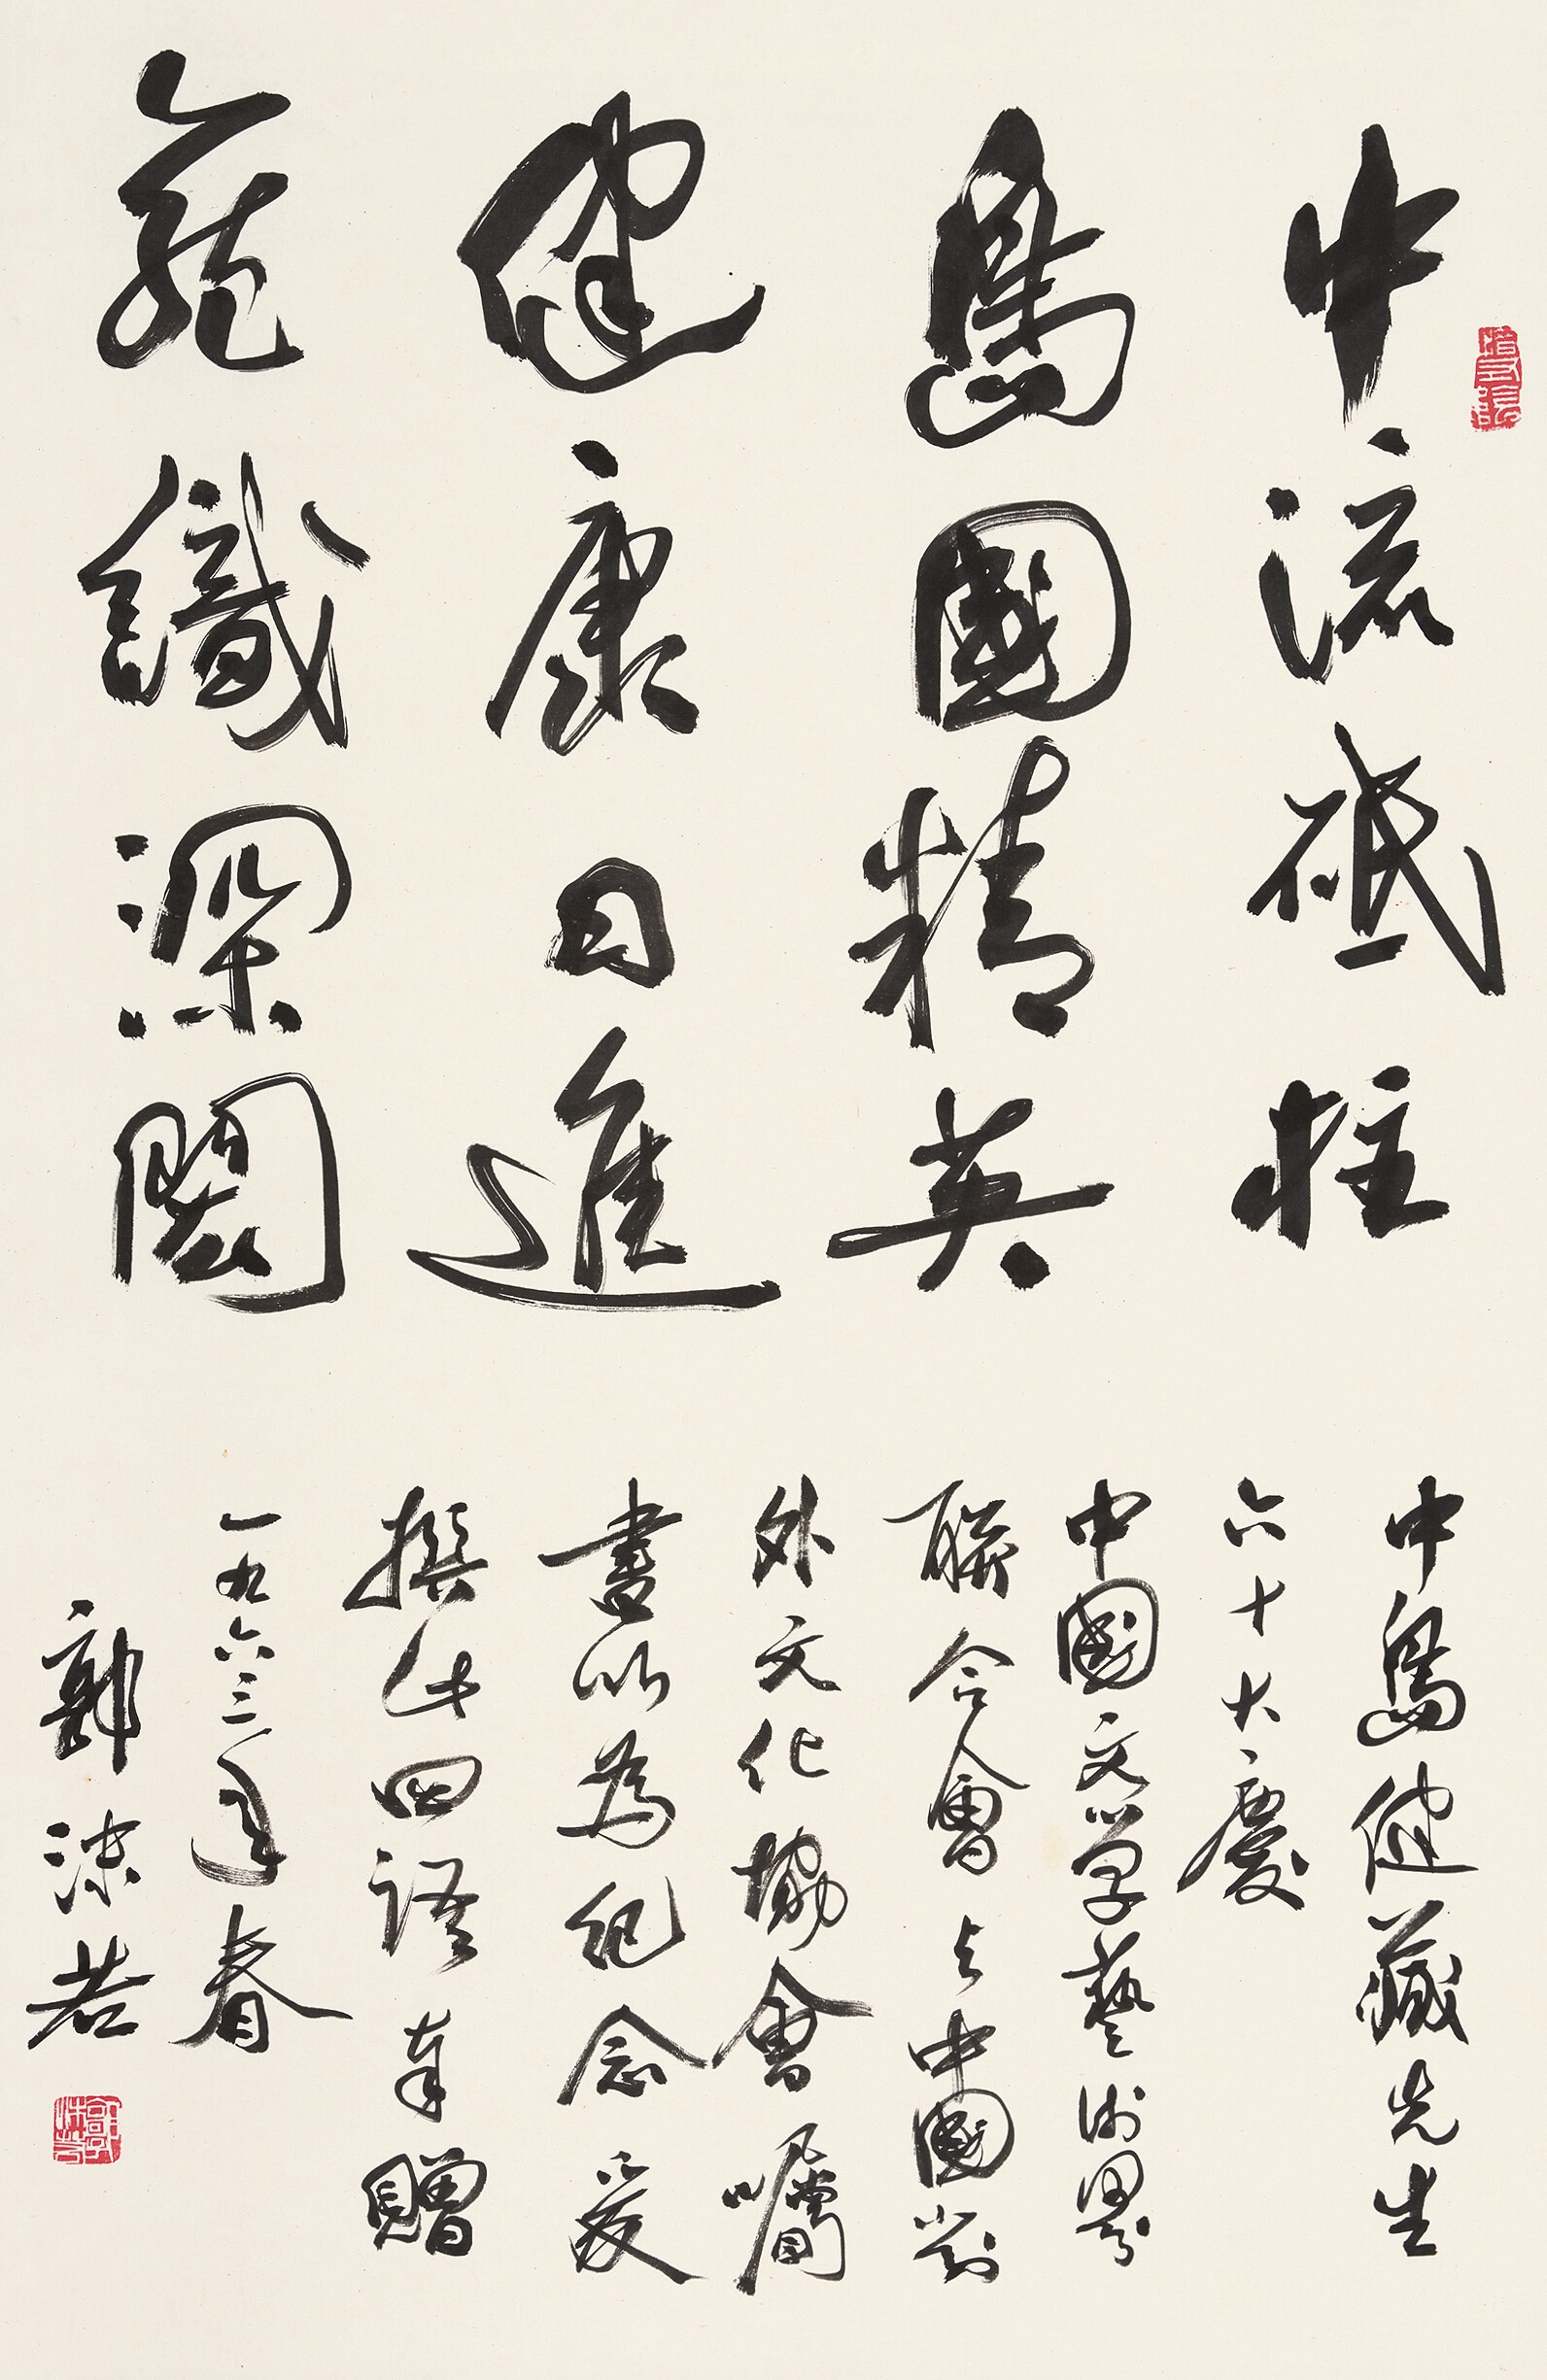 中流砥柱
島國精英
健康日進
藏識深閎
中島健藏先生
六十大慶
中國文学藝術界
聯合會与中國對
外文化協會囑
書以為紀念爰
撰此四語奉贈
一九六三年春
郭沫若
郭沫若